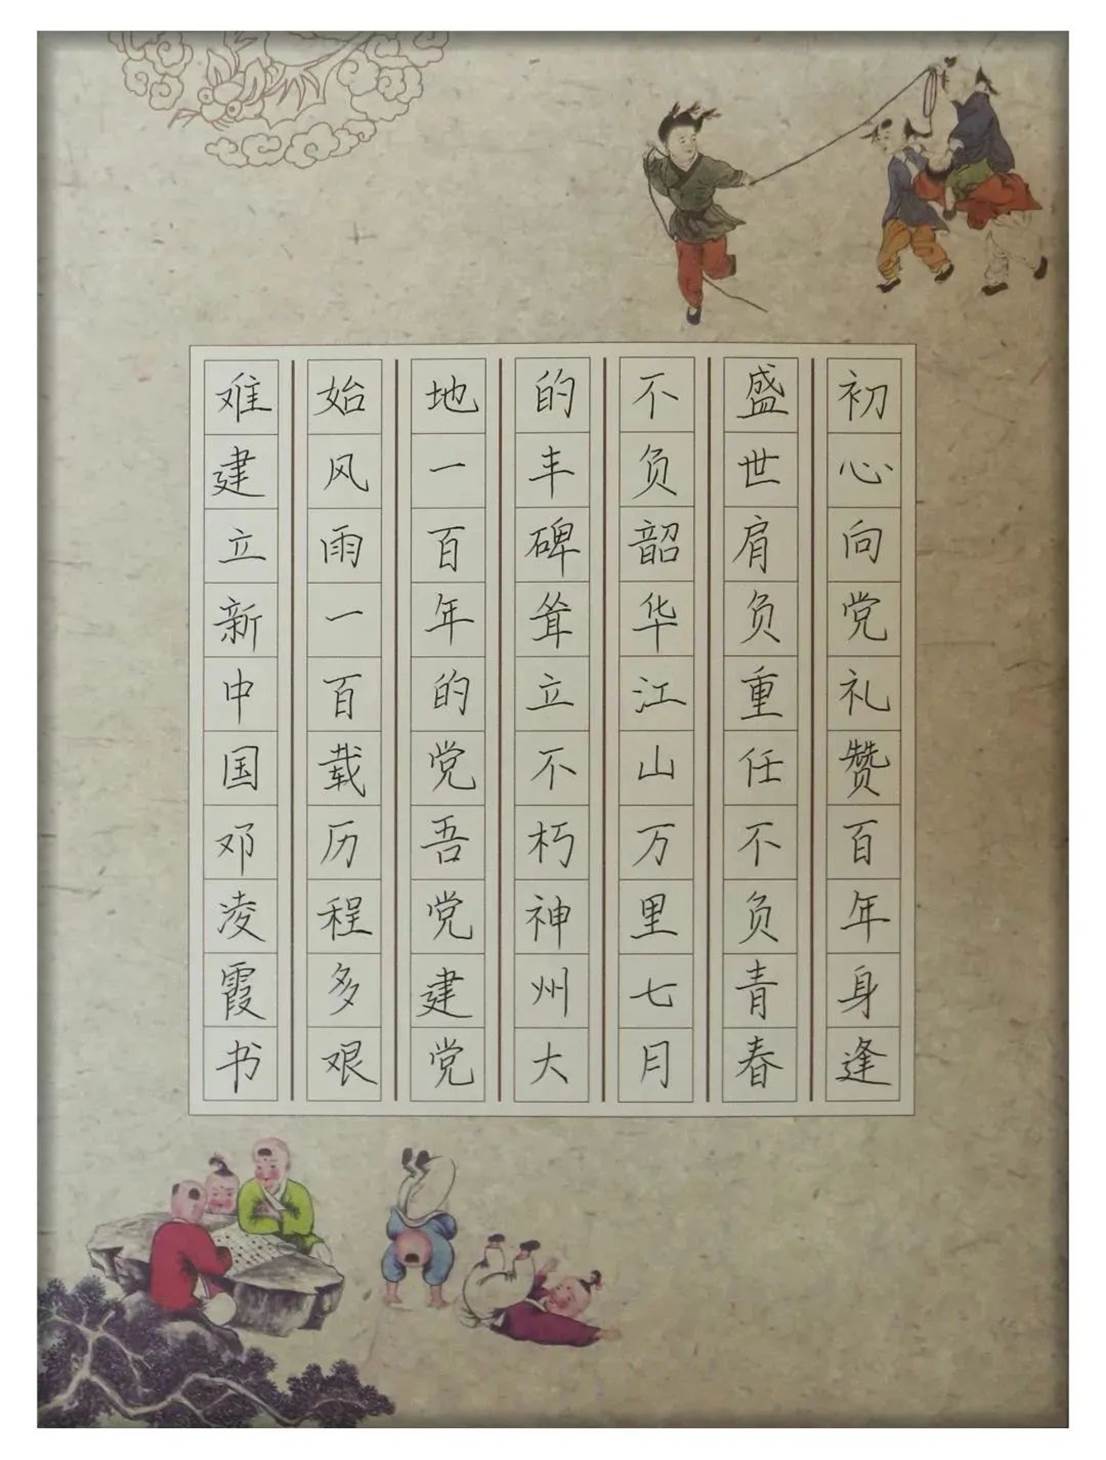 初心向党礼赞百年身逢
盛世肩负重任不负青春
不负韶华江山万里七月
的丰碑耸立不朽神州大
地一百年的党吾党建党
始风雨一百载历程多艰
难建立新中国邓凌霞书